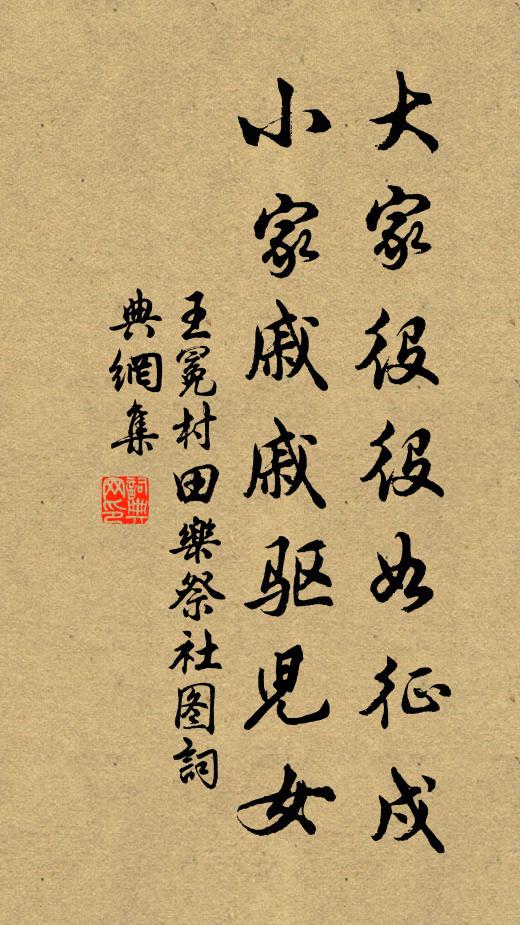 大家役役如征戍
小家戚戚驱児女
王冕村田樂祭社图詞
典網集
詞典网印